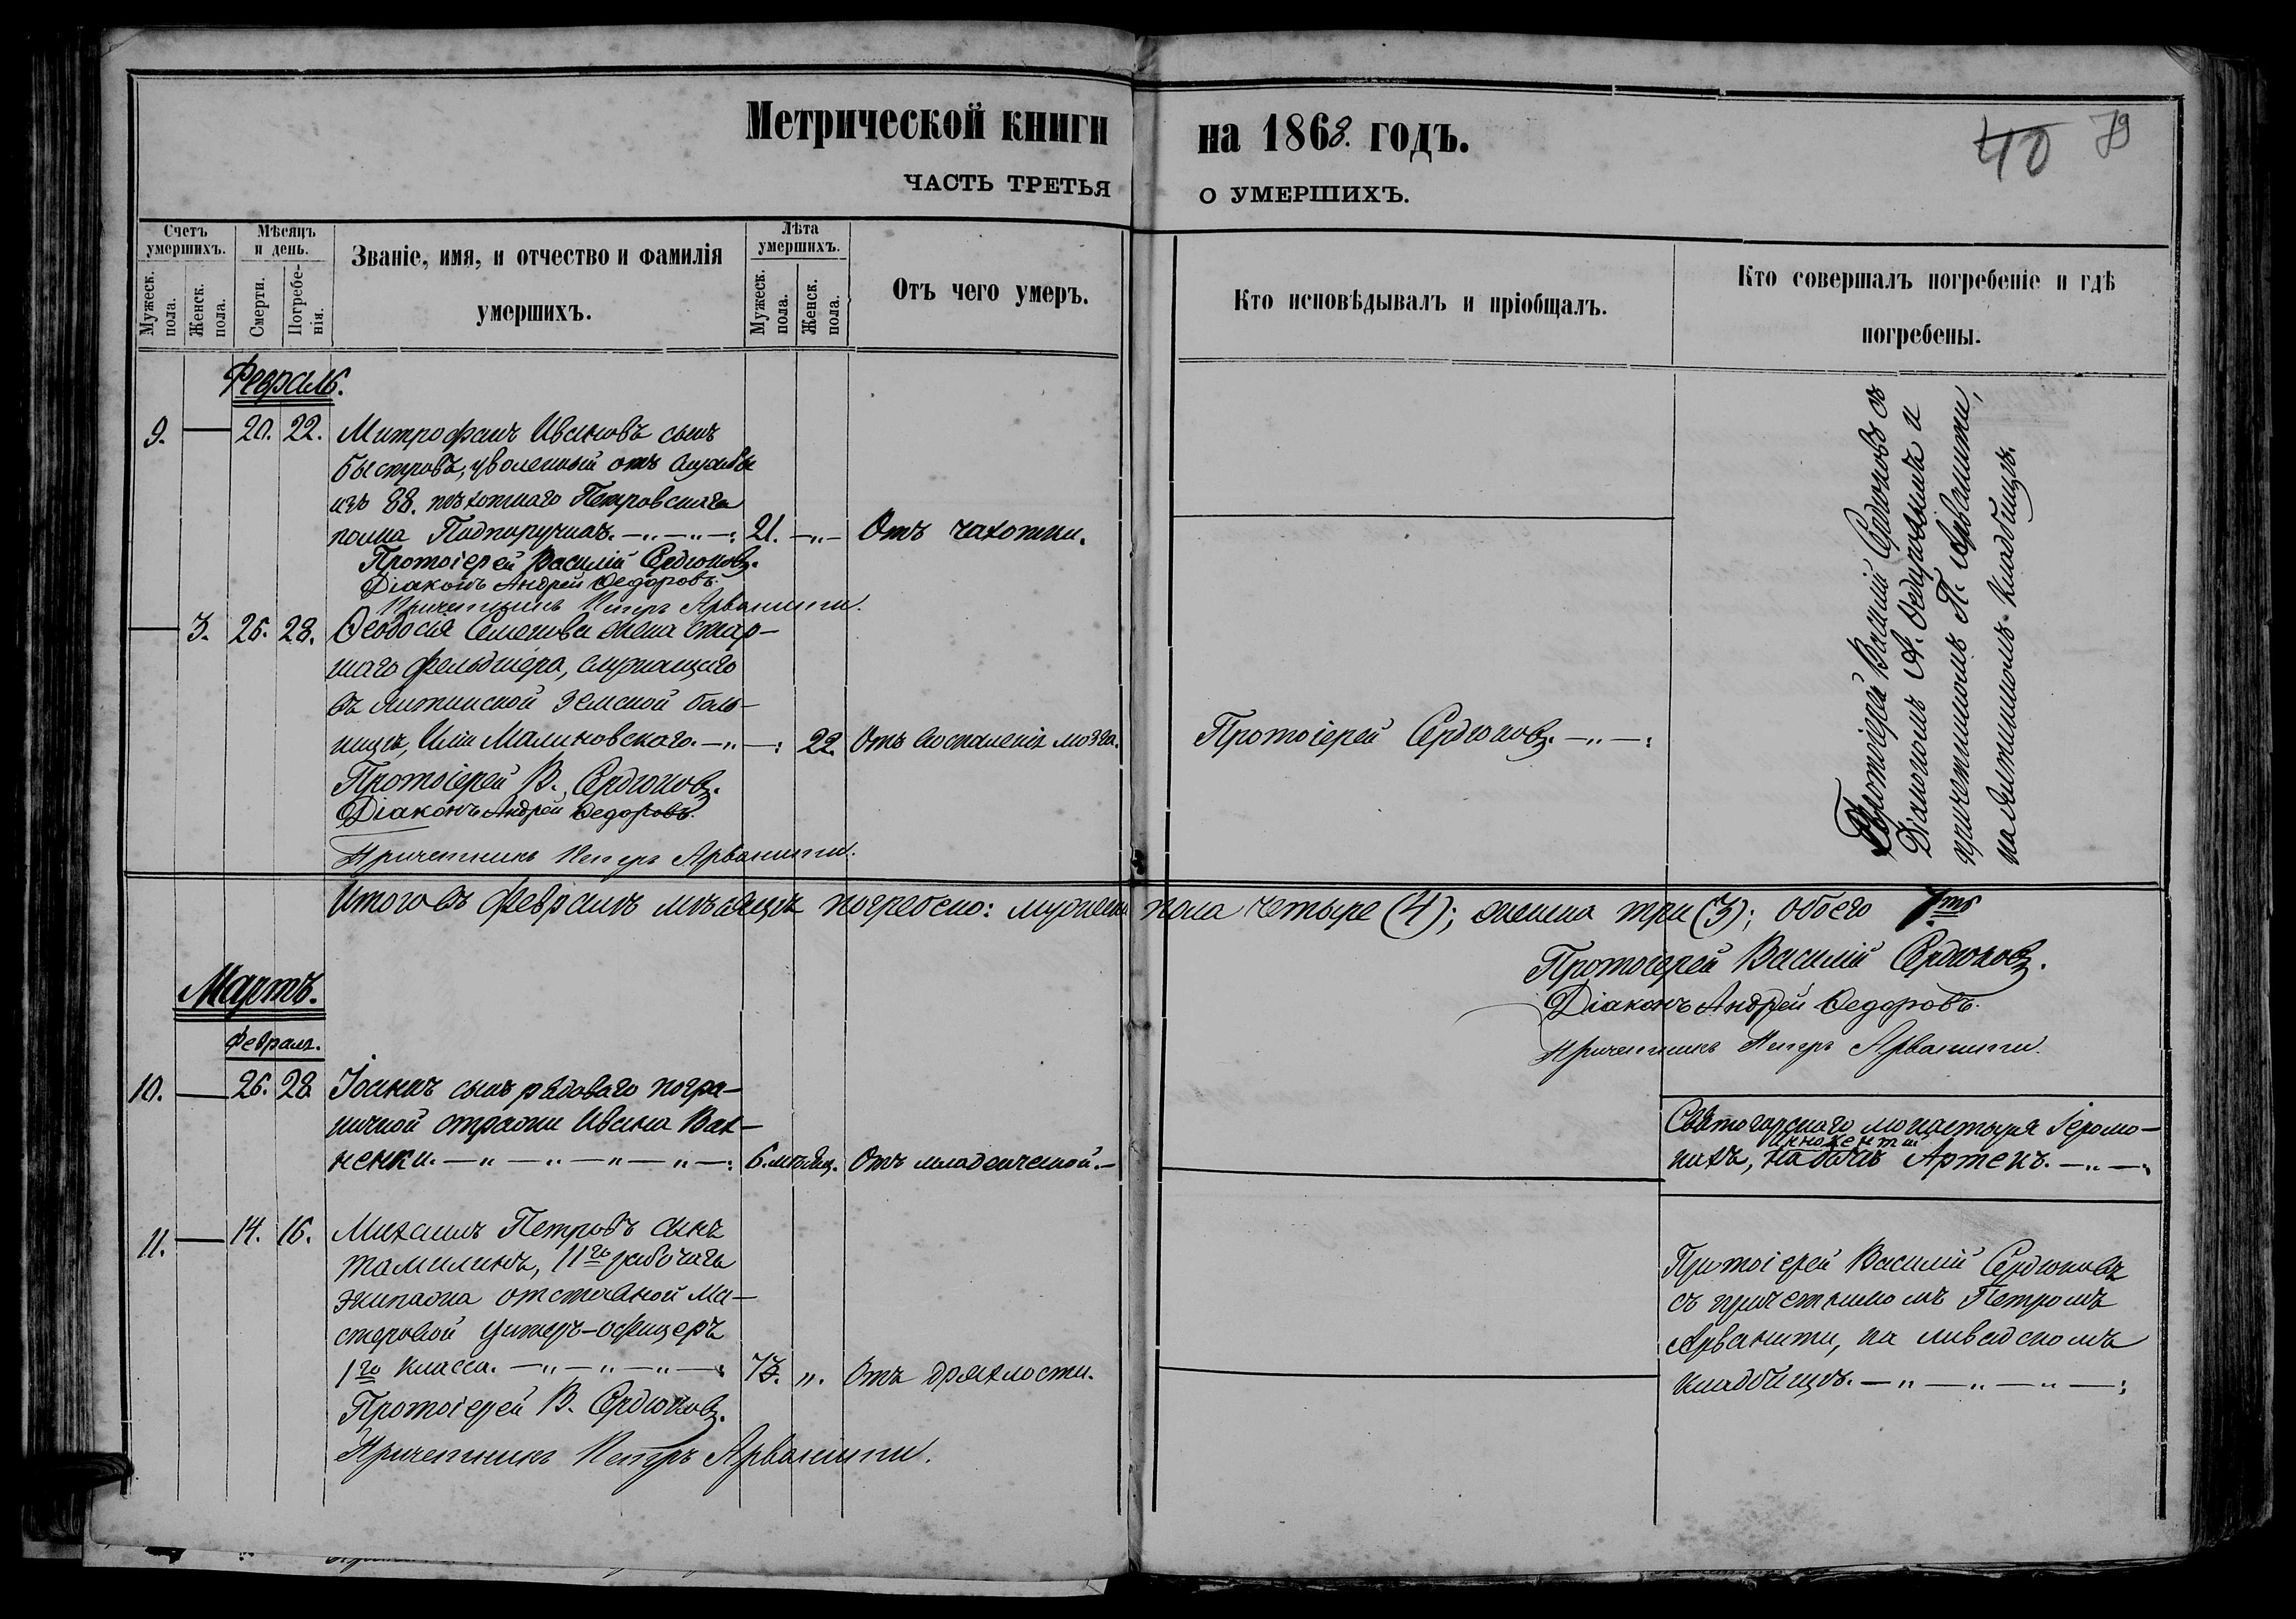 Метрической книги на 1868. годъ.
40 79
ЧАСТЬ ТРЕТЬЯ О УМЕРШИХЪ.
Счетъ умершихъ.
Мужеск. пола.
Женск. пола.
Мѣсяцъ и день.
Смерти.
Погребенія.
Званіе, имя, и отчество и фамилія
умершихъ.
Лѣта умершихъ.
Мужеск. пола.
Женск. пола.
Отъ чего умеръ.
Кто исповѣдывалъ и пріобщалъ.
Кто совершалъ погребеніе и гдѣ
погребены.
Февраль.
9. — 20. 22. Митрофанъ Ивановъ сынъ
Быстровъ, уволенный отъ службы
изъ 88. пѣхотнаго Петровскаго
полка Подпоручикъ. —„—„—: 21. —„— Отъ чахотки.
Протоіерей Василій Сердюковъ.
Діаконъ Андрей Ѳедоровъ.
Причетникъ Петръ Арванити.
— 3. 26. 28. Ѳеодосія Семенова жена стар-
шаго фельдшера, служащаго
въ Ялтинской Земской боль-
ницѣ, Иліи Малиновскаго. —„—: 22. Отъ воспаленія мозга.
Протоіерей Сердюковъ. —„—:
Протоіерей В. Сердюковъ.
Діаконъ Андрей Ѳедоровъ.
Причетникъ Петръ Арванити.
Протоіерей Василій Сердюковъ съ
Діакономъ А. Ѳедоровымъ и
причетникомъ П. Арванити,
на Ялтинскомъ кладбищѣ.
Итого въ Февралѣ мѣсяцѣ погребено: мужеска пола четыре (4); женска три (3); обоего 7мь
Протоіерей Василій Сердюковъ.
Діаконъ Андрей Ѳедоровъ.
Причетникъ Петръ Арванити.
Мартъ.
Февраль.
10. — 26. 28 Іоаннъ сынъ рядоваго погра-
ничной стражи Ивана Вах-
ненки. —„—„—„—„—: 6. мѣсяц. Отъ младенческой. —
Святогорскаго монастыря Іеромо-
Инокентій
нахъ, на дачѣ Артекъ. —„—:
11. — 14. 16. Михаилъ Петровъ сынъ
Томилинъ, 11го рабочаго
экипажа отставной Ма-
стеровой унтеръ-офицеръ
1го класса. —„—„—„—: 73. „. Отъ дряхлости.
Протоіерей В. Сердюковъ.
Причетникъ Петръ Арванити.
Протоіерей Василій Сердюковъ
съ причетникомъ Петромъ
Арванити, на ливадскомъ
кладбищѣ. —„—„—„—: